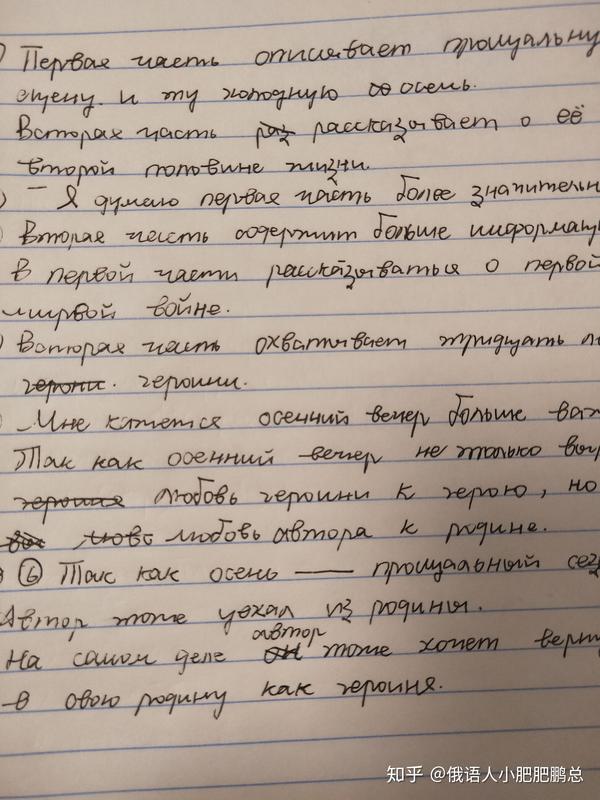 ) Первая часть описывает прощальну
сцену и ту холодную осень.
Вторая часть раз рассказывает о её
второй половине жизни.
) – Я думаю первая часть более значительн
) Вторая часть содержит больше информац
В первой части рассказываться о первой
мировой войне.
) Вторая часть охватывает тридцать л
герони. героини.
) Мне кажется осенний вечер больше важ
Так как осенний вечер не только выр
героиня любовь героини к герою, но
любовь автора к родине.
⑥ Так как осень —— прощальный сез
Автор тоже уехал из родины.
автор
На самом деле он тоже хочет верну
в свою родину как героиня.
知乎 @俄语人小肥肥鹏总